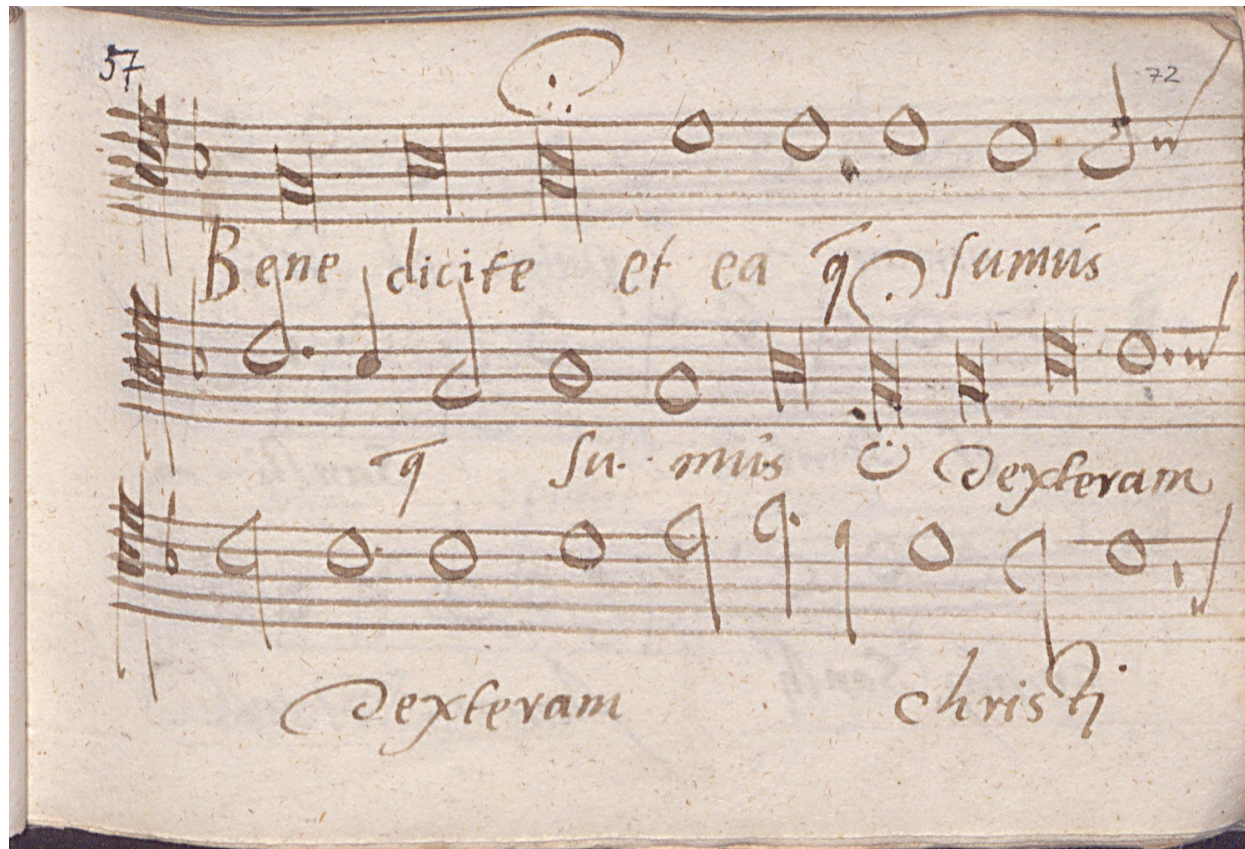 57 72
Bene dicite et ea q̄ sumus
q̄ su. mus Dexteram
Dexteram christi